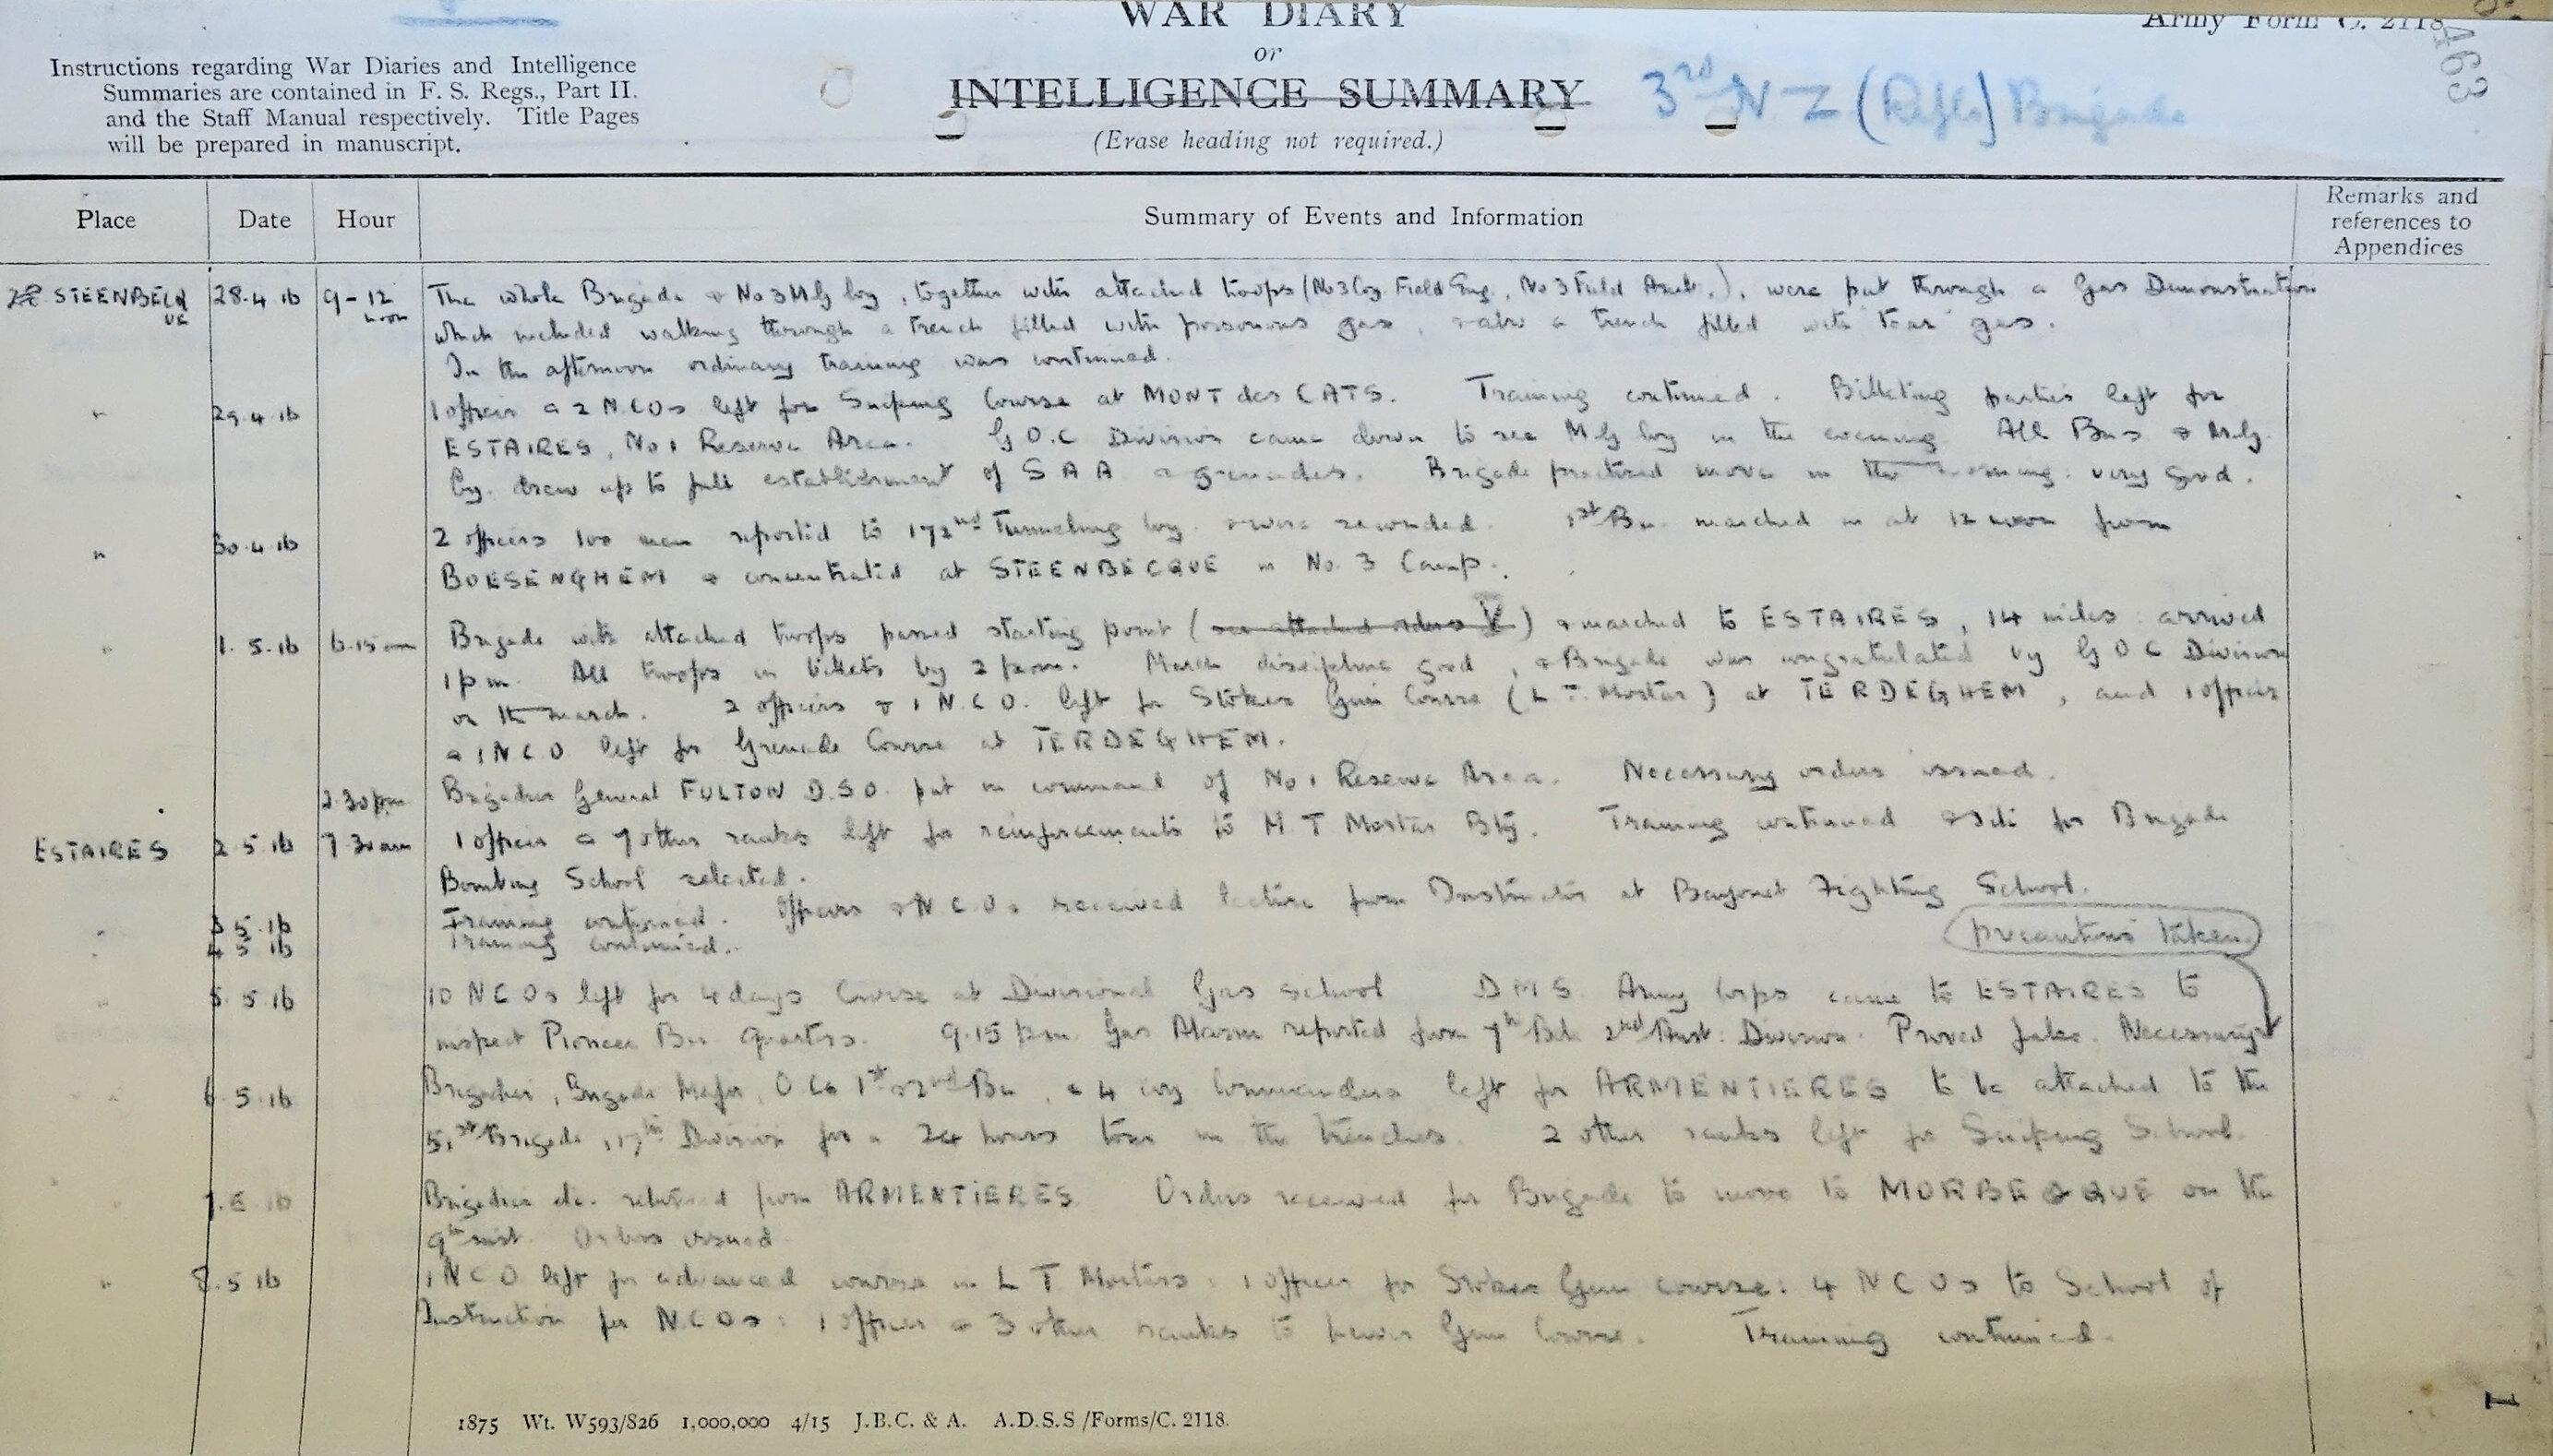 WAR DIARY
Army Form C. 2118
or
INTELLIGENCE SUMMARY
(Erase heading not required.)
Instructions regarding War Diaries and Intelligence
Summaries are contained in F. S. Regs., Part II.
and the Staff Manual respectively. Title Pages
will be prepared in manuscript.
3rd N Z (Rifle) Brigade
463
Place
Date
Hour
Summary of Events and Information
Remarks and
references to
Appendices
STEENBECQ
UE
28.4.16
9-12
noon
The whole Brigade & No 3 M G Coy, together with attached troops (No 3 Coy Field Eng., No 3 Field Amb.), were put through a Gas Demonstration
which included walking through a trench filled with poisonous gas, & also a trench filled with 'tear' gas.
In the afternoon ordinary training was continued.
"
29.4.16
1 officer & 2 N.C.Os left for Sniping Course at MONT des CATS. Training continued. Billeting parties left for
ESTAIRES, No 1 Reserve Area. G.O.C Division came down to see M G Coy in the evening. All Bns & M.G.
Coy. drew up to full establishment of S A A & grenades. Brigade practised move in the morning: very good.
"
30.4.16
2 officers 100 men reported to 172nd Tunneling Coy. & were rescinded. 1st Bn. marched in at 12 noon from
BOESENGHEM & concentrated at STEENBECQUE in No. 3 Camp.
"
1.5.16
6.15 am
Brigade with attached troops passed starting point (see attached orders V) & marched to ESTAIRES, 14 miles: arrived
1 pm. All troops in billets by 2 pm. March discipline good, & Brigade was congratulated by G O C Division
on the march. 2 officers & 1 N.C.O. left for Stokes Gun Course (L T. Mortar) at TERDEGHEM, and 1 officer
& 1 N C O left for Grenade Course at TERDEGHEM.
2.30 pm
Brigadier General FULTON D.S.O. put in command of No 1 Reserve Area. Necessary orders issued.
ESTAIRES
2 5 16
7 30 am
1 officer & 7 other ranks left for reinforcements to M T Mortar Bty. Training continued & site for Brigade
Bombing School selected.
"
3 5 16
Training continued. Officers & N C Os received lecture from Instructor at Bayonet Fighting School.
"
4 5 16
Training continued.
precautions taken.
"
5.5.16
10 N C Os left for 4 days Course at Divisional Gas School D M S Army Corps came to ESTAIRES to
inspect Pioneer Bn quarters. 9.15 pm Gas Alarm reported from 7th Bn 2nd Aust: Division. Proved false. Necessary
"
6.5.16
Brigadier, Brigade Major, O Cs 1st & 2nd Bn, & 4 coy commanders left for ARMENTIERES to be attached to the
51st Brigade, 17th Division for a 24 hours tour in the trenches. 2 other ranks left for Sniping School.
"
7.5.16
Brigadier etc. returned from ARMENTIERES Orders received for Brigade to move to MORBECQUE on the
9th inst. Orders issued
"
8.5.16
1 N C O left for advanced course in L T Mortars: 1 officer for Stokes Gun course: 4 N C Os to School of
Instruction for N.C.Os: 1 officer & 3 other ranks to Lewis Gun Course. Training continued.
1875 Wt. W593/826 1,000,000 4/15 J.B.C. & A. A.D.S.S./Forms/C. 2118.
1